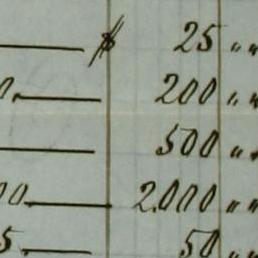 $ 25 " "
0. 200 " "
500 " "
00 2.000 " "
5. 50 " "